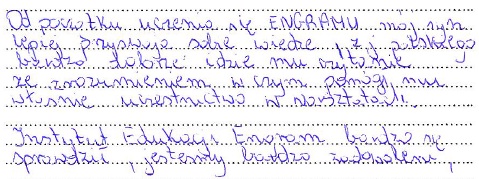 Od początku uczenia się ENGRAMU mój syn
lepiej przyswaja sobie wiedzę, z j. polskiego
bardzo dobrze idzie mu czytanie
ze zrozumieniem, w czym pomógł mu
właśnie uczestnictwo w warsztatach.
Instytut Edukacji Engram bardzo się
sprawdził, jesteśmy bardzo zadowoleni,